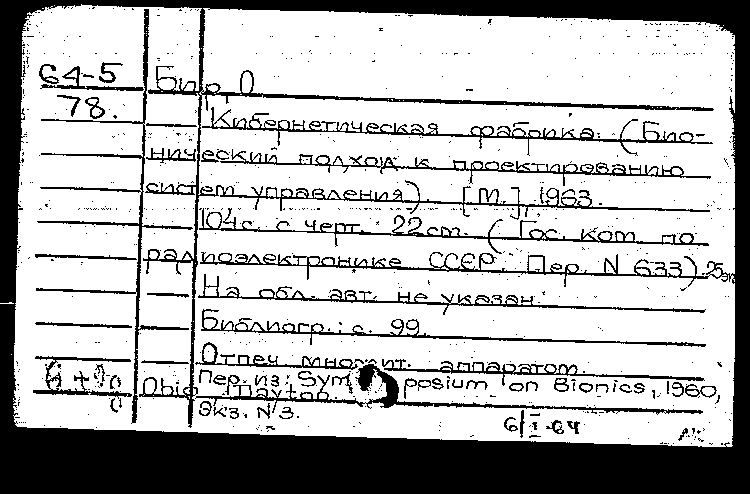 64-5 Бир, О
78.
Кибернетическая фабрика. (Био-
нический подход к проектированию
систем управления). [М.], 1963.
104с. с черт. 22см. (Гос. ком. по
радиоэлектронике СССР. Пер. N 633). 25 экз
На обл. авт. не указан.
Библиогр.: с. 99.
Отпеч. множит. аппаратом.
Пер. из: Symposium on Bionics, 1960,
Ohio, Dayton.
Экз. N 3.
6/I-64